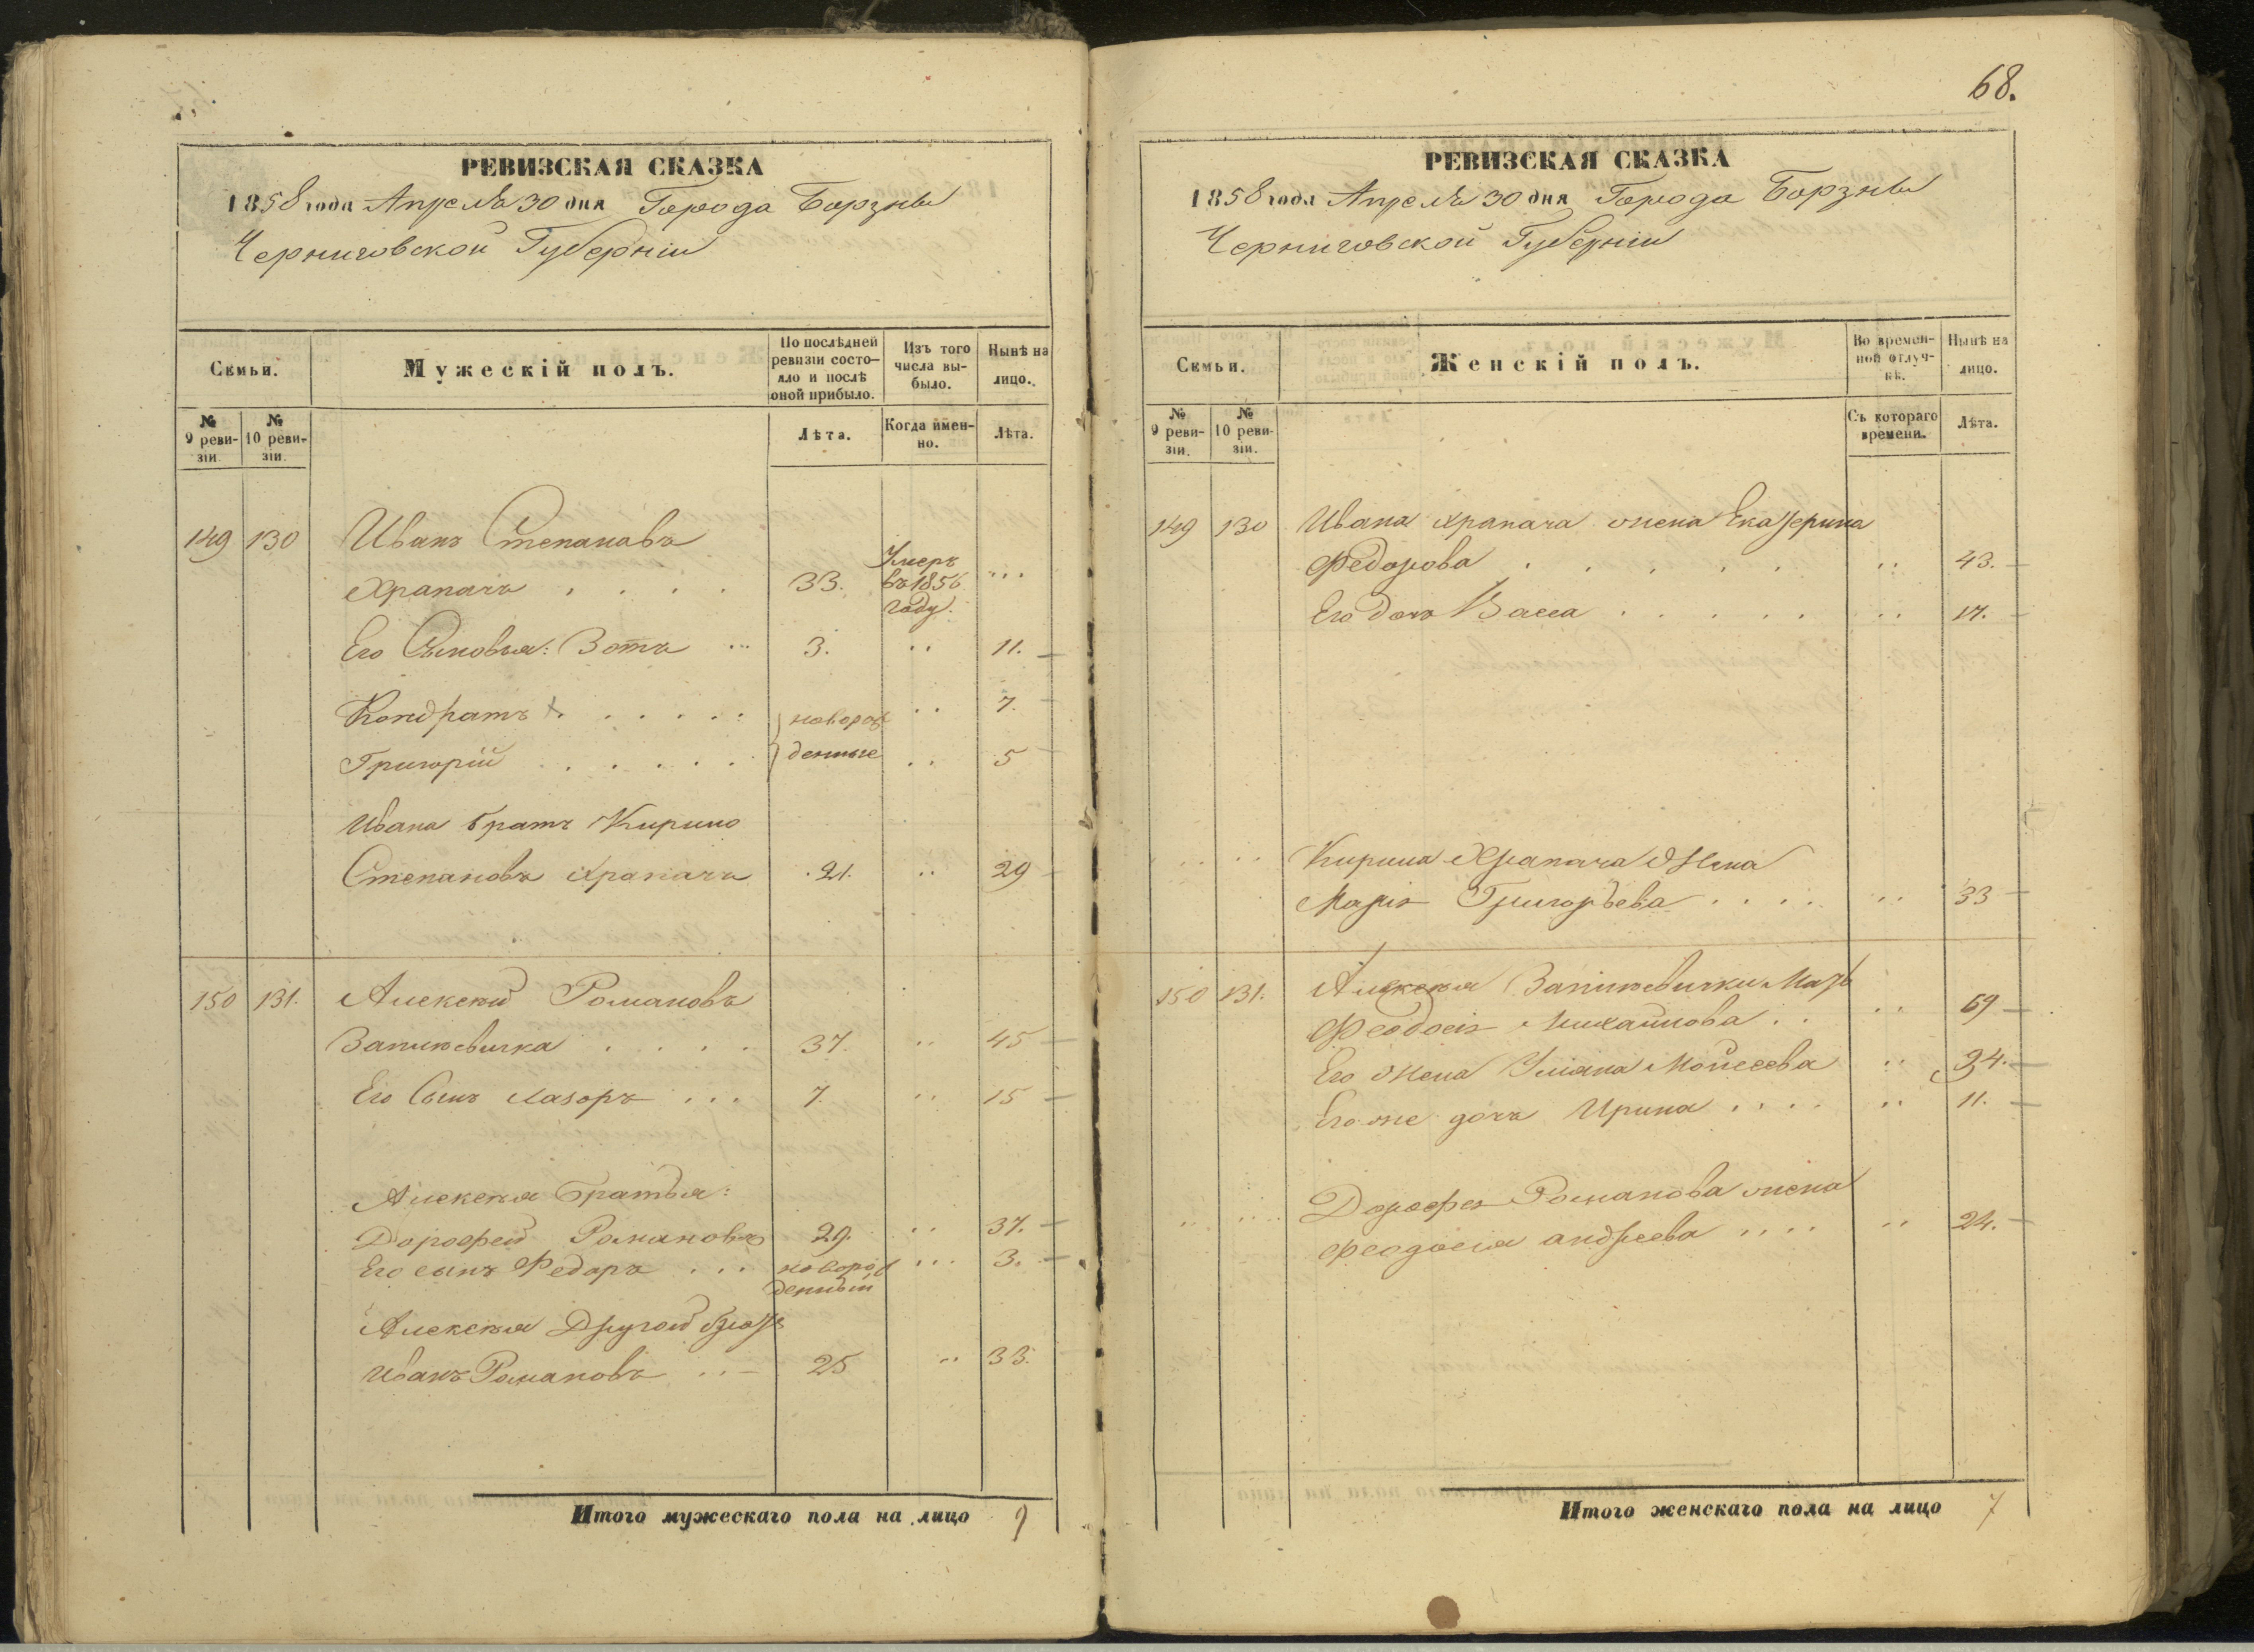 РЕВИЗСКАЯ СКАЗКА
1858 года Апреля 30 дня Города Борзны
Черниговской Губерніи
Семьи.
Мужескій полъ.
По послѣдней
ревизіи состо-
яло и послѣ
оной прибыло.
Изъ того
числа вы-
было.
Нынѣ на
лицо.
№
9 реви-
зіи.
№
10 реви-
зіи.
Лѣта.
Когда имен-
но.
Лѣта.
149 130 Иванъ Степановъ
Храпачъ . . . . 33. Умеръ въ 1856 году. ...
Его Сыновья: Зотъ ... 3. .. 11.
Кондратъ . . . . . новорож .. 7.
Григорій . . . . . денные .. 5
Ивана братъ Кирило
Степановъ Храпачъ . 21. .. 29
150 131. Алексей Романовъ
Запиневичка . . . . 37. .. 45
Его Сынъ Лазоръ ... 7. .. 15
Алексея Братья:
Дорофей Романовъ 29. .. 37.
Его сынъ Федоръ ... новорож ... 3.
денный
Алексея Другой братъ
Иванъ Романовъ .. 25 .. 33.
Итого мужескаго пола на лицо 9
68.
РЕВИЗСКАЯ СКАЗКА
1858 года Апреля 30 дня Города Борзны
Черниговской Губерніи
Семьи.
Женскій полъ.
Во времен-
ной отлуч-
кѣ.
Нынѣ на
лицо.
№
9 реви-
зіи.
№
10 реви-
зіи.
Съ котораго
времени.
Лѣта.
149 130 Ивана Храпача жена Екатерина
Федорова . . . . . .. 43.
Его дочь Васса . . . . . .. 17.
.. .. Кирила Храпача жена
Марія Григорьева . . . . .. 33
150 131. Алексея Запиневички Мать
Феодосія Михайлова . . .. 69
Его жена Уліана Моисеева .. 34.
Его же дочь Ирина . . . . .. 11.
.. .. Дорофея Романова жена
Феодосія Андреева . . . . .. 24.
Итого женскаго пола на лицо 7